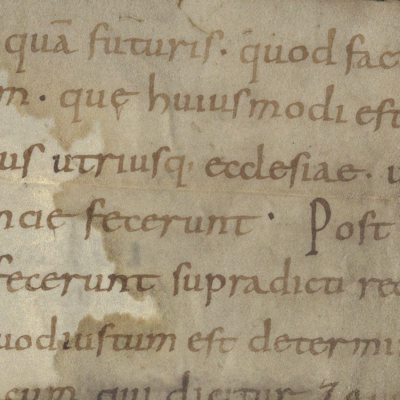 quā futuris. quod fac
m. quę huiusmodi est
us utriusq; ecclesiae. u
ncię fecerunt. Post
fecerunt supradicti re
uod iustum est determi
cum qui dicitur